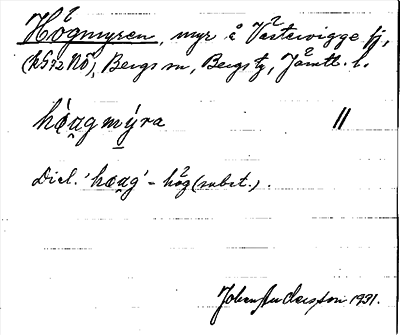 Högmyren, myr å Västervigge fj,
(k572 NÖ), Bergs sn, Bergs tg, Jämtl. l.
hò̜ːa̯g mýra                    "
Dial. 'hɷa̯g' - hög (subst.).
Johan Andersson 1931.